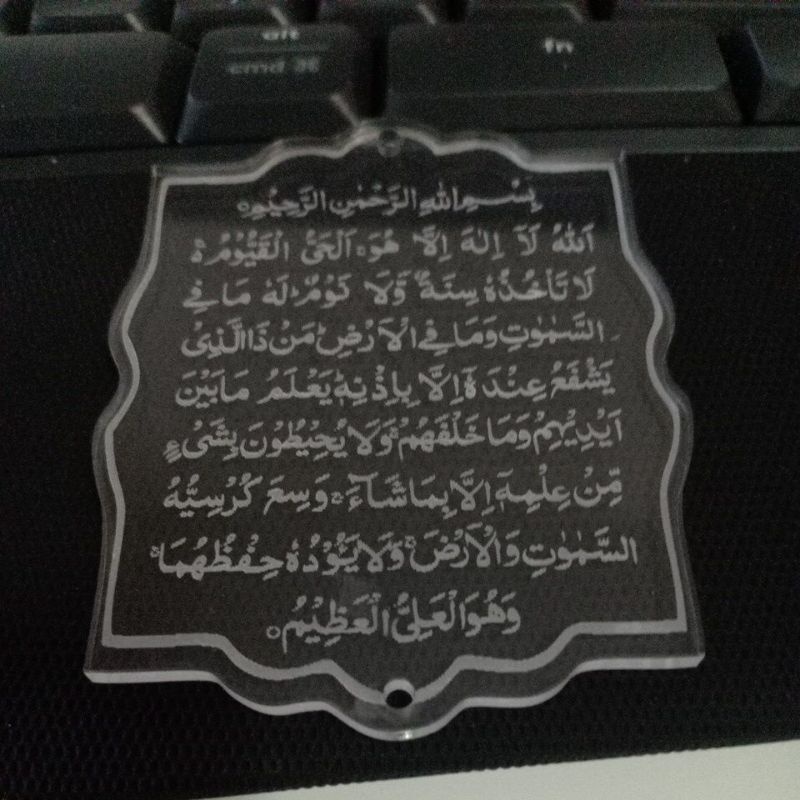 alt
cmd ⌘
fn
بِسْمِ اللهِ الرَّحْمٰنِ الرَّحِيْمِ ○
اَللهُ لَآ اِلٰهَ اِلَّا هُوَ ۚ اَلْحَىُّ الْقَيُّوْمُ ۚ
لَا تَأْخُذُهٗ سِنَةٌ وَّلَا نَوْمٌ ؕ لَهٗ مَا فِى
السَّمٰوٰتِ وَمَا فِى الْاَرْضِ ؕ مَنْ ذَا الَّذِىْ
يَشْفَعُ عِنْدَهٗۤ اِلَّا بِاِذْنِهٖ ؕ يَعْلَمُ مَا بَيْنَ
اَيْدِيْهِمْ وَمَا خَلْفَهُمْ ۚ وَلَا يُحِيْطُوْنَ بِشَىْءٍ
مِّنْ عِلْمِهٖۤ اِلَّا بِمَا شَآءَ ۚ وَسِعَ كُرْسِيُّهُ
السَّمٰوٰتِ وَالْاَرْضَ ۚ وَلَا يَئُوْدُهٗ حِفْظُهُمَا ۚ
وَهُوَ الْعَلِىُّ الْعَظِيْمُ ○